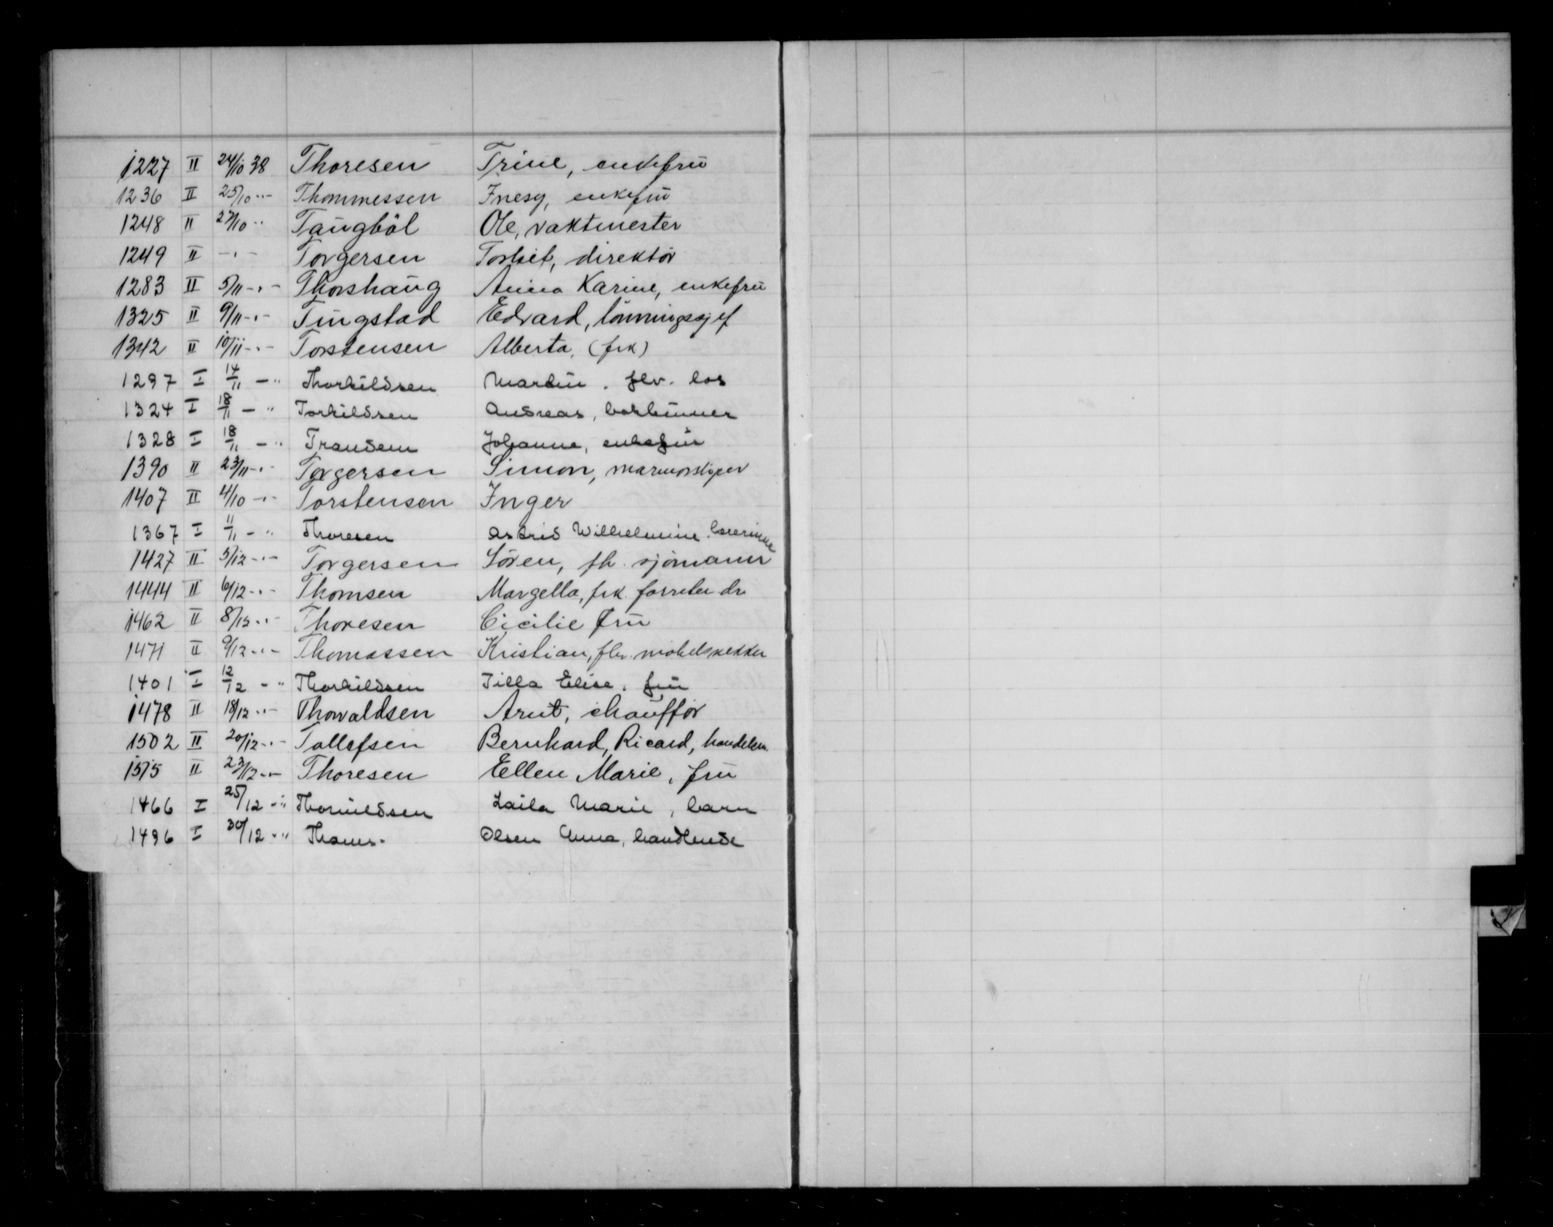 1227 II 24/10 38 Thoresen Trine, enkefru
1236 II 25/10 -"- Thommessen Inesy, enkefru
1248 II 27/10 -"- Taugböl Ole, vaktmester
1249 II -"- Torgersen direktör
1283 II 5/11 -"- Thorshaug Anna Karine, enkefru
1325 II 9/11 -"- Tingstad Edvard, lönningssjef
1342 II 10/11 -"- Torstensen Alberta, (frk)
1297 I 14/11 -"- Thorkildsen Martin. flv. los
1324 I 18/11 -"- Torkildsen Andreas,
1328 I 18/11 -"- Transem Johanne, enkefru
1390 II 23/11 -"- Torgersen Simon, marmorsliper
1407 II 4/10 -"- Torstensen Inger
1367 I 11/11 -"- Thoresen Astrid Wilhelmine. lærerinne
1427 II 5/12 -"- Torgersen Sören, fh. sjömann
1444 II 6/12 -"- Thomsen Margella, frk.
1462 II 8/12 -"- Thoresen Cicilie fru
1471 II 9/12 -"- Thomassen Kristian, flv. möbelsnekker
1401 I 12/12 -"- Thorkildsen Jilla Elise. fru
1478 II 18/12 -"- Thorvaldsen Arnt, chaufför
1502 II 20/12 -"- Tallefsen Bernhard, Ricard, handelsm.
1515 II 23/12 -"- Thoresen Ellen Marie, fru
1466 I 25/12 -"- Laila Marie, barn
1496 I 30/12 -"- Thams. Olsen Anna, handlende